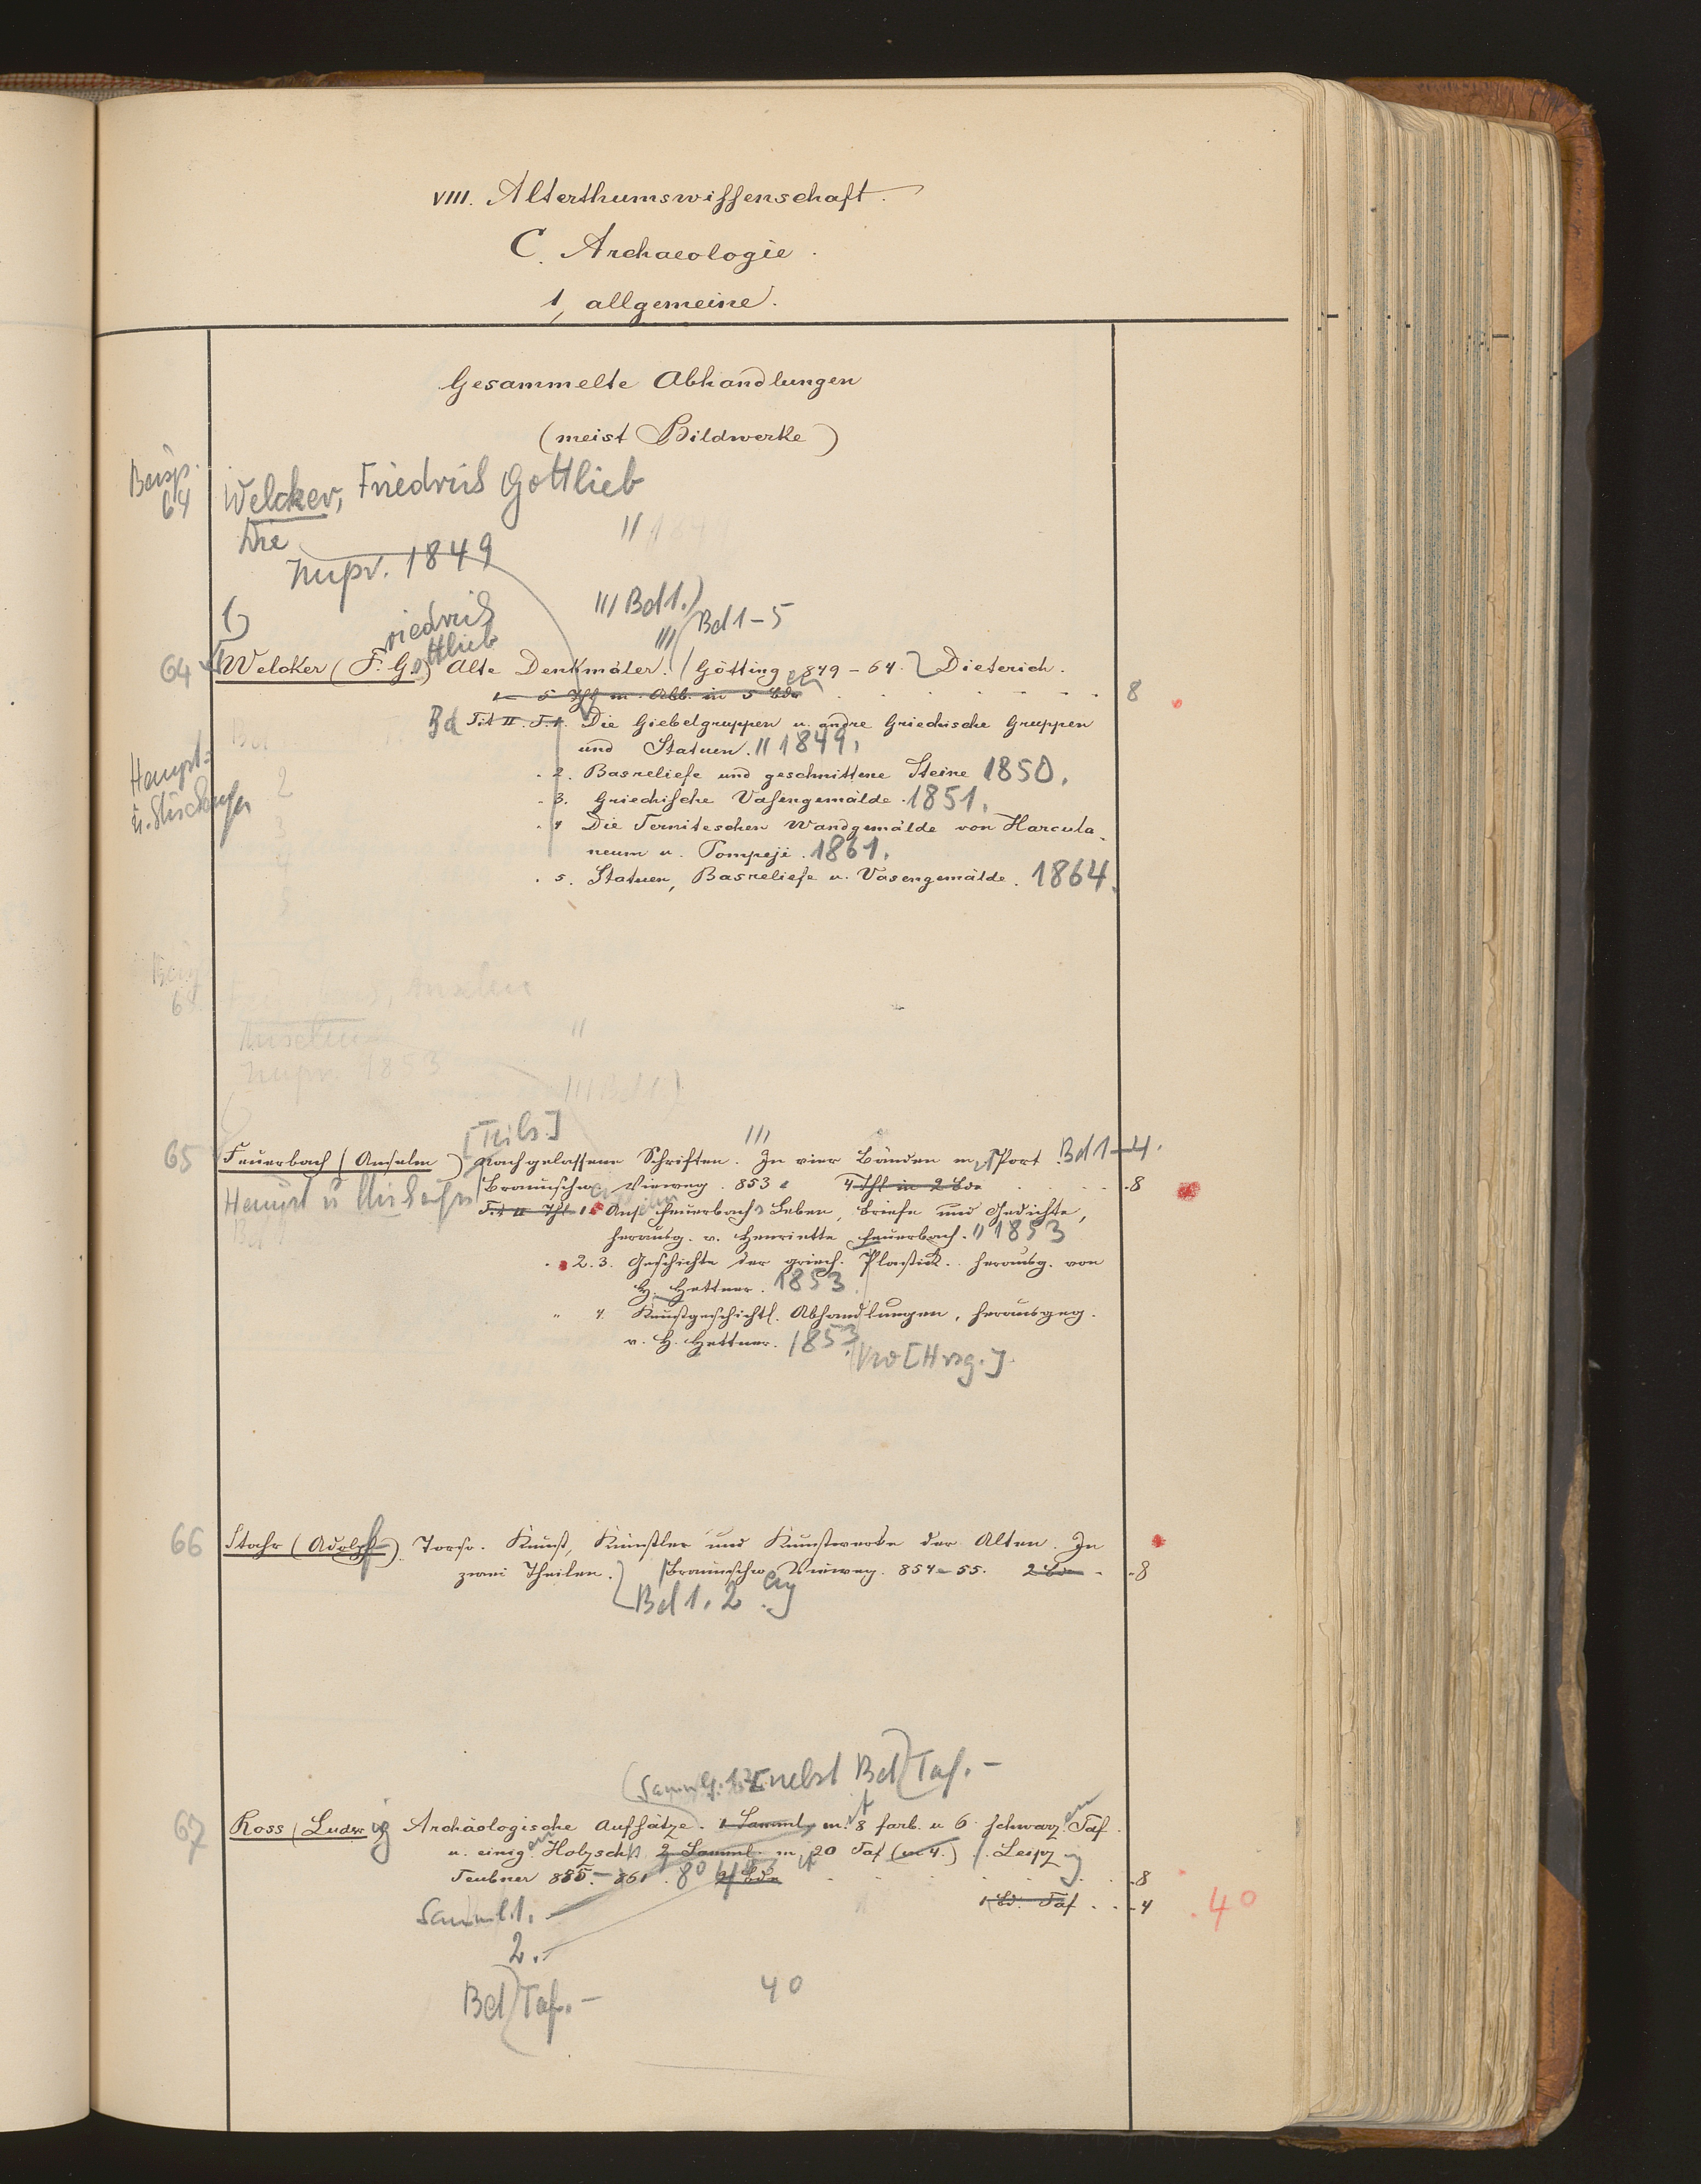 VIII. Alterthumswissenschaft.
C. Archaeologie.
1, allgemeine.
Gesammelte Abhandlungen
(meist Bildwerke)
64
Welcker, Friedrich Gottlieb
Die
"
1849
/// Bd 1.) Bd 1-5
64 Welcker (F. G.) riedrich ottlieb Alte Denkmäler. /// Götting en 849-64. Dieterich.
1-5 Thl m. Abb. in 5 Bde 8
Bd Tit II. T. 1. Die Giebelgruppen u. andre Griechische Gruppen
und Statuen. " 1849.
Haupt=
2. Basreliefe und geschnittene Steine 1850.
3. Griechische Vasengemälde. 1851.
4 Die Terniteschen Wandgemälde von Harcula
neum u. Pompeji. 1861.
5. Statuen, Basreliefe u. Vasengemälde. 1864.
[Teils.] ///
65 Feuerbach (Anselm) Nachgelassene Schriften. In vier Bänden m. Port Bd 1-4.
Braunschw Vieweg. 853 4 Thl in 2 Bde 8
Tit II Thl 1. Ans elm Feuerbach's Leben, Briefe und Gedichte,
herausg. v. Henriette Feuerbach. " 1853
2.3. Geschichte der griech. Plastik. herausg. von
H. Hettner. 1853
" 4. Kunstgeschichtl. Abhandlungen, herausgeg.
v. H. Hettner. 1853
[Hrsg.]
66 Stahr (Adolph) f Torso. Kunst, Künstler und Kunstwerke der Alten. In
zwei Theilen. Braunschw eig Vieweg. 854-55. 2 Bde 8
Bd 1. 2
(Samml. 1.2. [nebst Bd) Taf. -
67 Ross (Ludw ig Archäologische Aufsätze. 1 Samml, m. it 8 farb. u 6 schwarz. en Taf.
u. einig en Holzsch 2 Samml. m it 20 Taf (in 4.) Leipz ig
Teubner 855.-861. 80 2 Bde 8
1 Bd. Taf. 4 40
Samml. 1. -
2. -
Bd) Taf. - 40